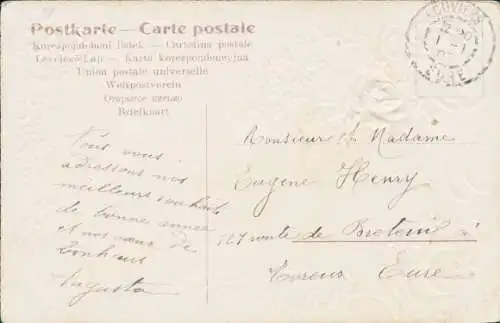 Postkarte – Carte postale
Korespondenční lístek – Cartolina postale
Levelező-Lap – Karta korespondencyjna
Union postale universelle
Weltpostverein
Открытое письмо
Briefkaart
LOUVIERS
EURE
Nous vous
adressons nos
meilleurs souhaits
de bonne année
et nos vœux de
bonheur
Augusta
Monsieur & Madame
Eugène Henry
127 route de Breteuil
Evreux Eure